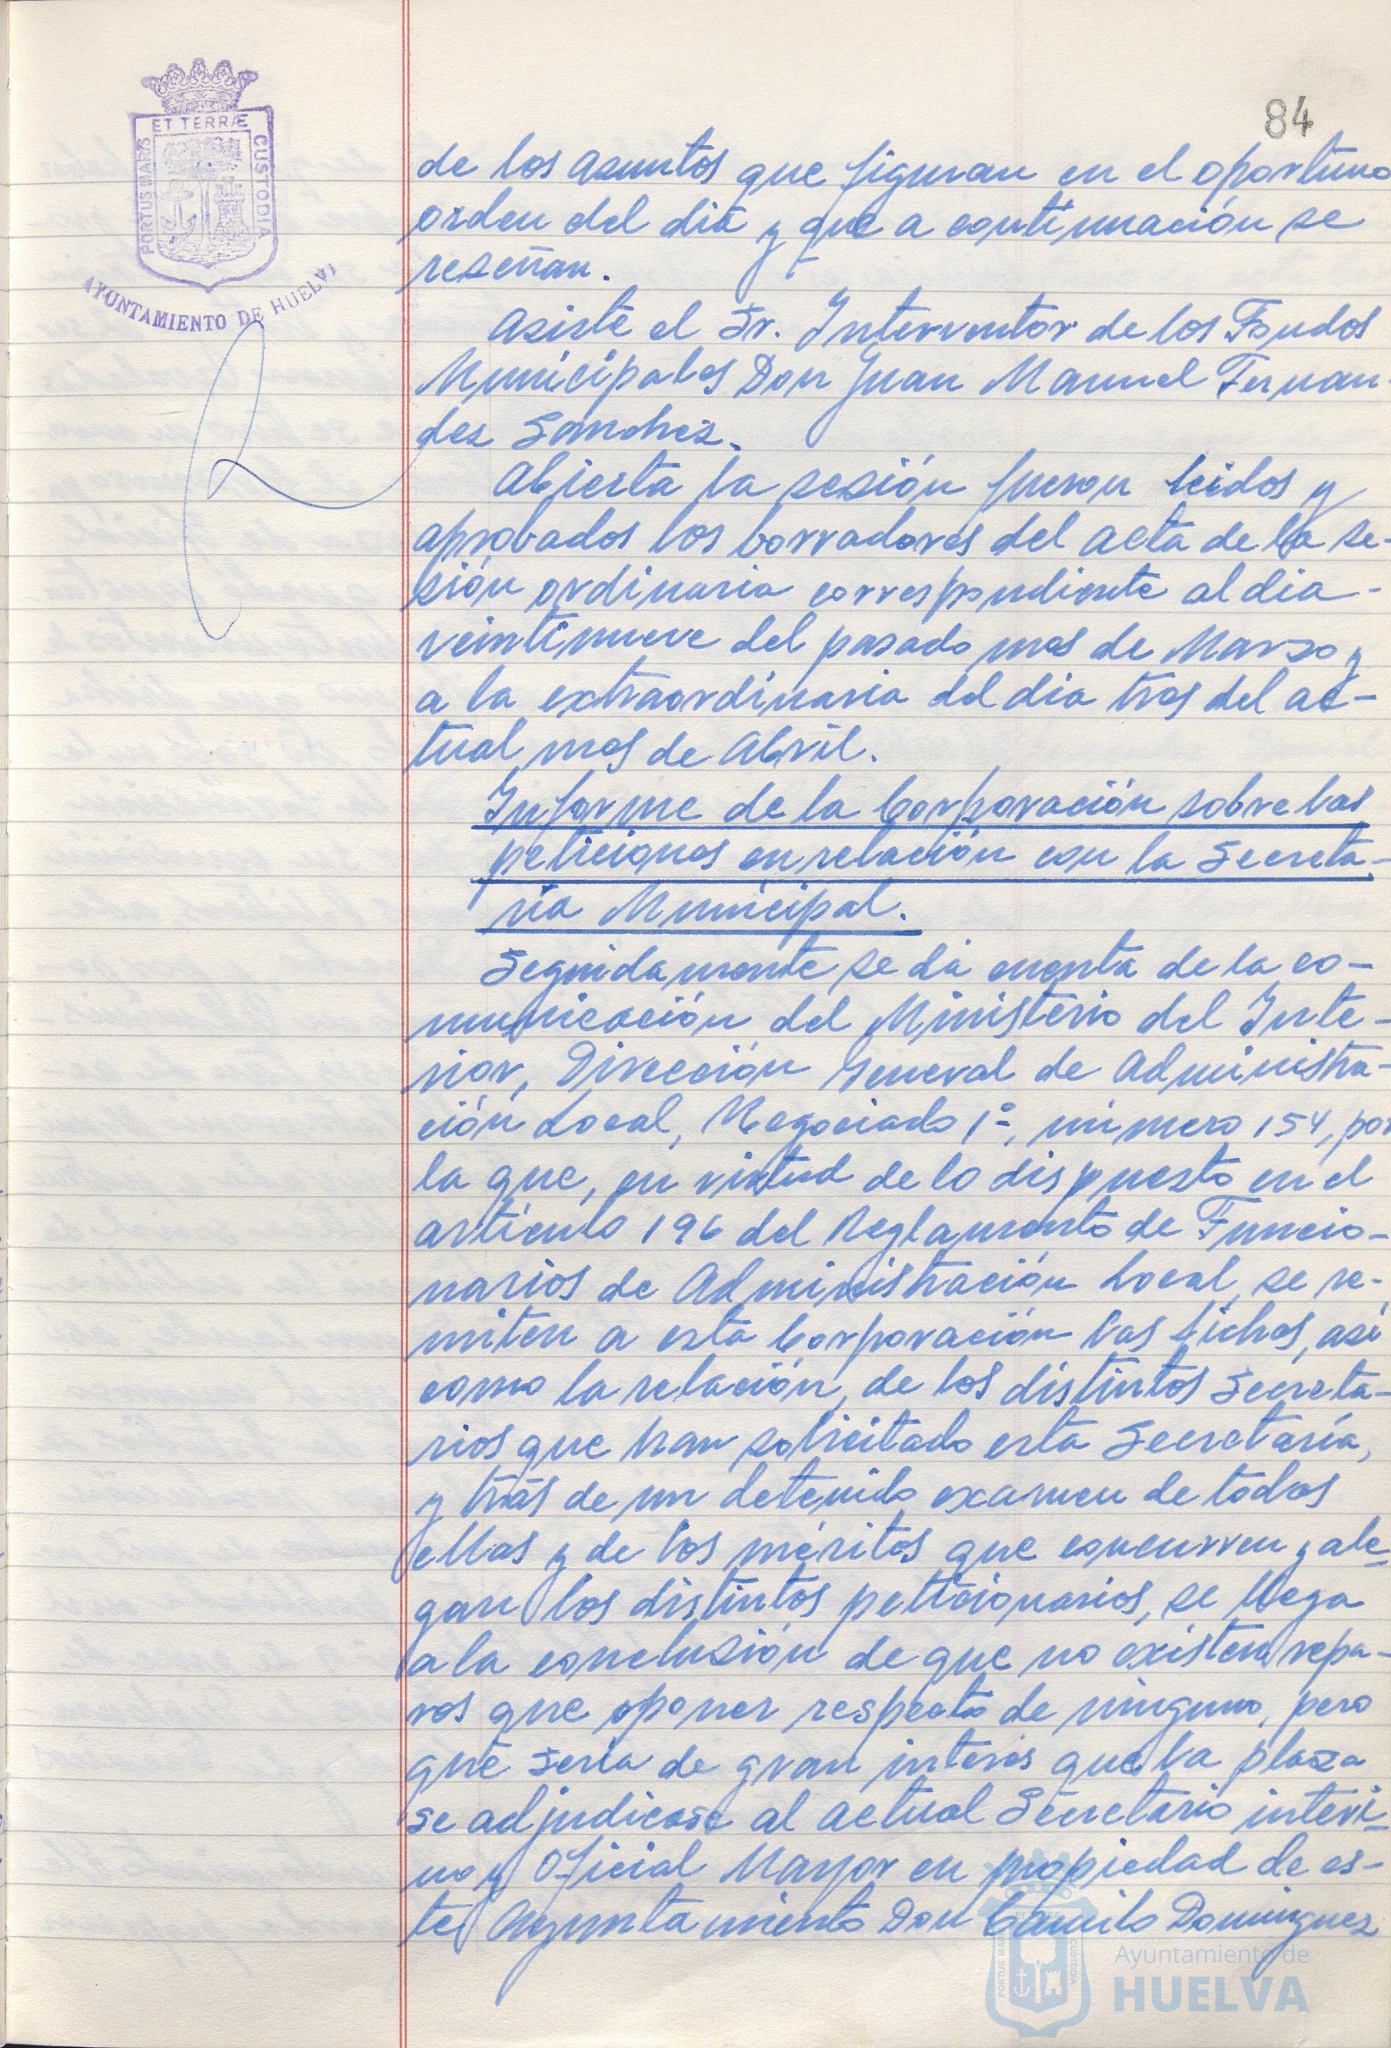 84
ET TERRÆ
PORTUS MARIS
CUSTODIA
AYUNTAMIENTO DE HUELVA
de los asuntos que figuran en el oportuno
orden del dia y que a continuación se
reseñan.
Asiste el Sr. Interventor de los Fondos
Municipales Don Juan Manuel Fernan-
dez Sanchez.
Abierta la sesión fueron leidos y
aprobados los borradores del acta de la se-
sión ordinaria correspondiente al dia-
veintinueve del pasado mes de Marzo y
a la extraordinaria del dia tres del ac-
tual mes de Abril.
Informe de la Corporación sobre las
peticiones en relación con la Secreta-
ria Municipal.
Seguidamente se dá cuenta de la co-
municación del Ministerio del Inte-
rior, Dirección General de Administra-
ción Local, Negociado 1º, número 154, por
la que, en virtud de lo dispuesto en el
artículo 196 del Reglamento de Funcio-
narios de Administración Local, se re-
miten a esta Corporación las fichas, así
como la relación, de los distintos Secreta-
rios que han solicitado esta Secretaría,
y trás de un detenido examen de todas
ellas y de los méritos que concurren y ale-
gan los distintos peticionarios, se llega
a la conclusión de que no existen repa-
ros que oponer respecto de ninguno, pero
que sería de gran interés que la plaza
se adjudicase al actual Secretario interi-
no y Oficial Mayor en propiedad de es-
te Ayuntamiento Don Camilo Dominguez
Ayuntamiento de
HUELVA